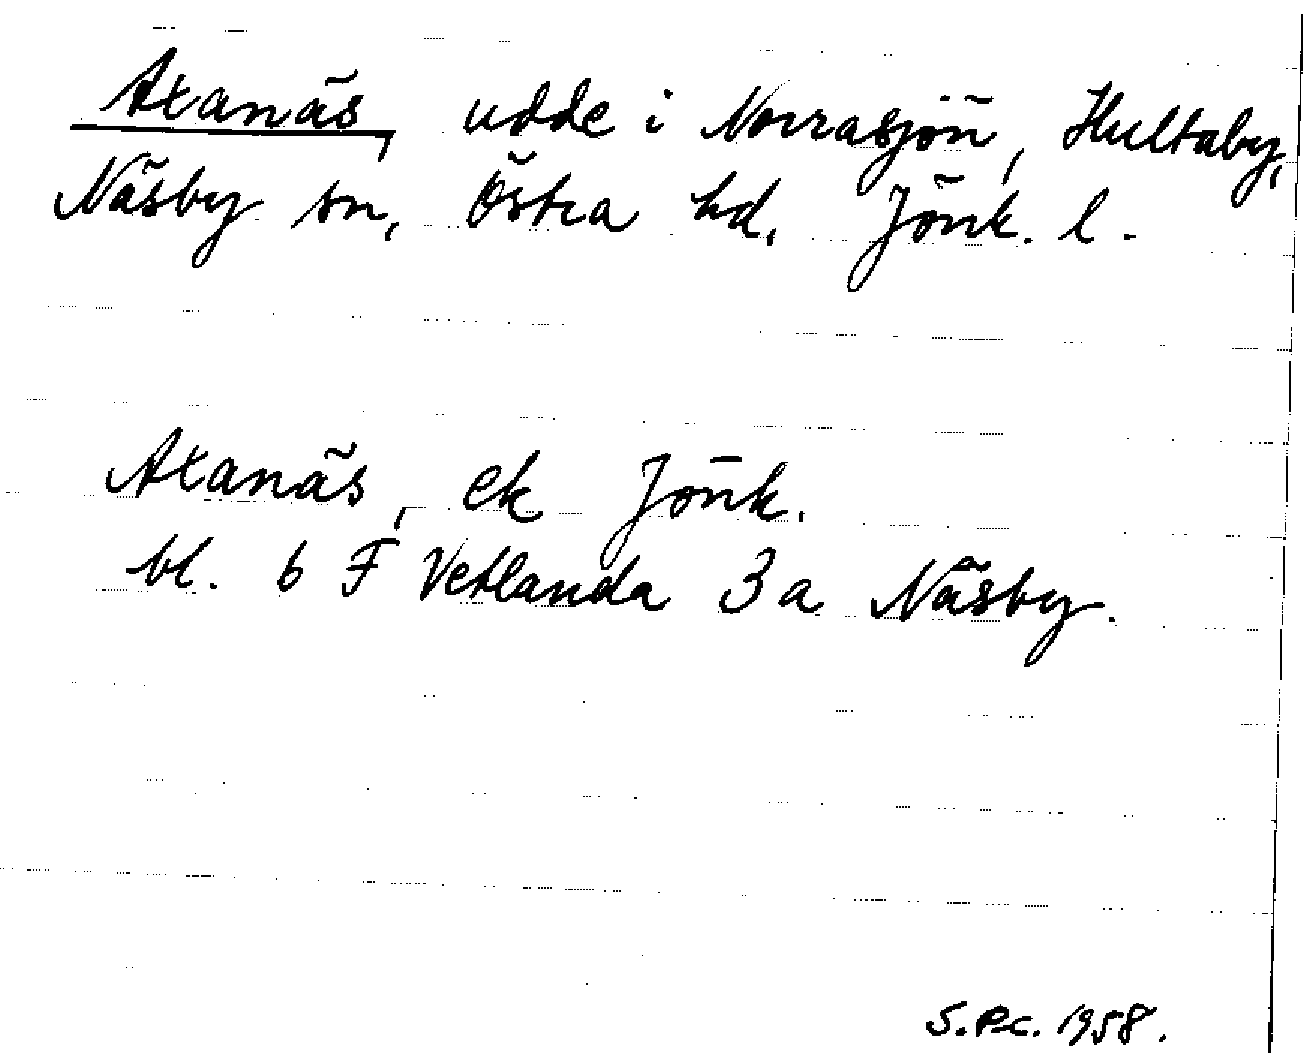 Axanäs, udde i Norrasjön, Hultaby,
Näsby sn, Östra hd, Jönk. l.
Axanäs, ek Jönk.
bl. 6 F Vetlanda 3a Näsby.
S.P.C. 1958.